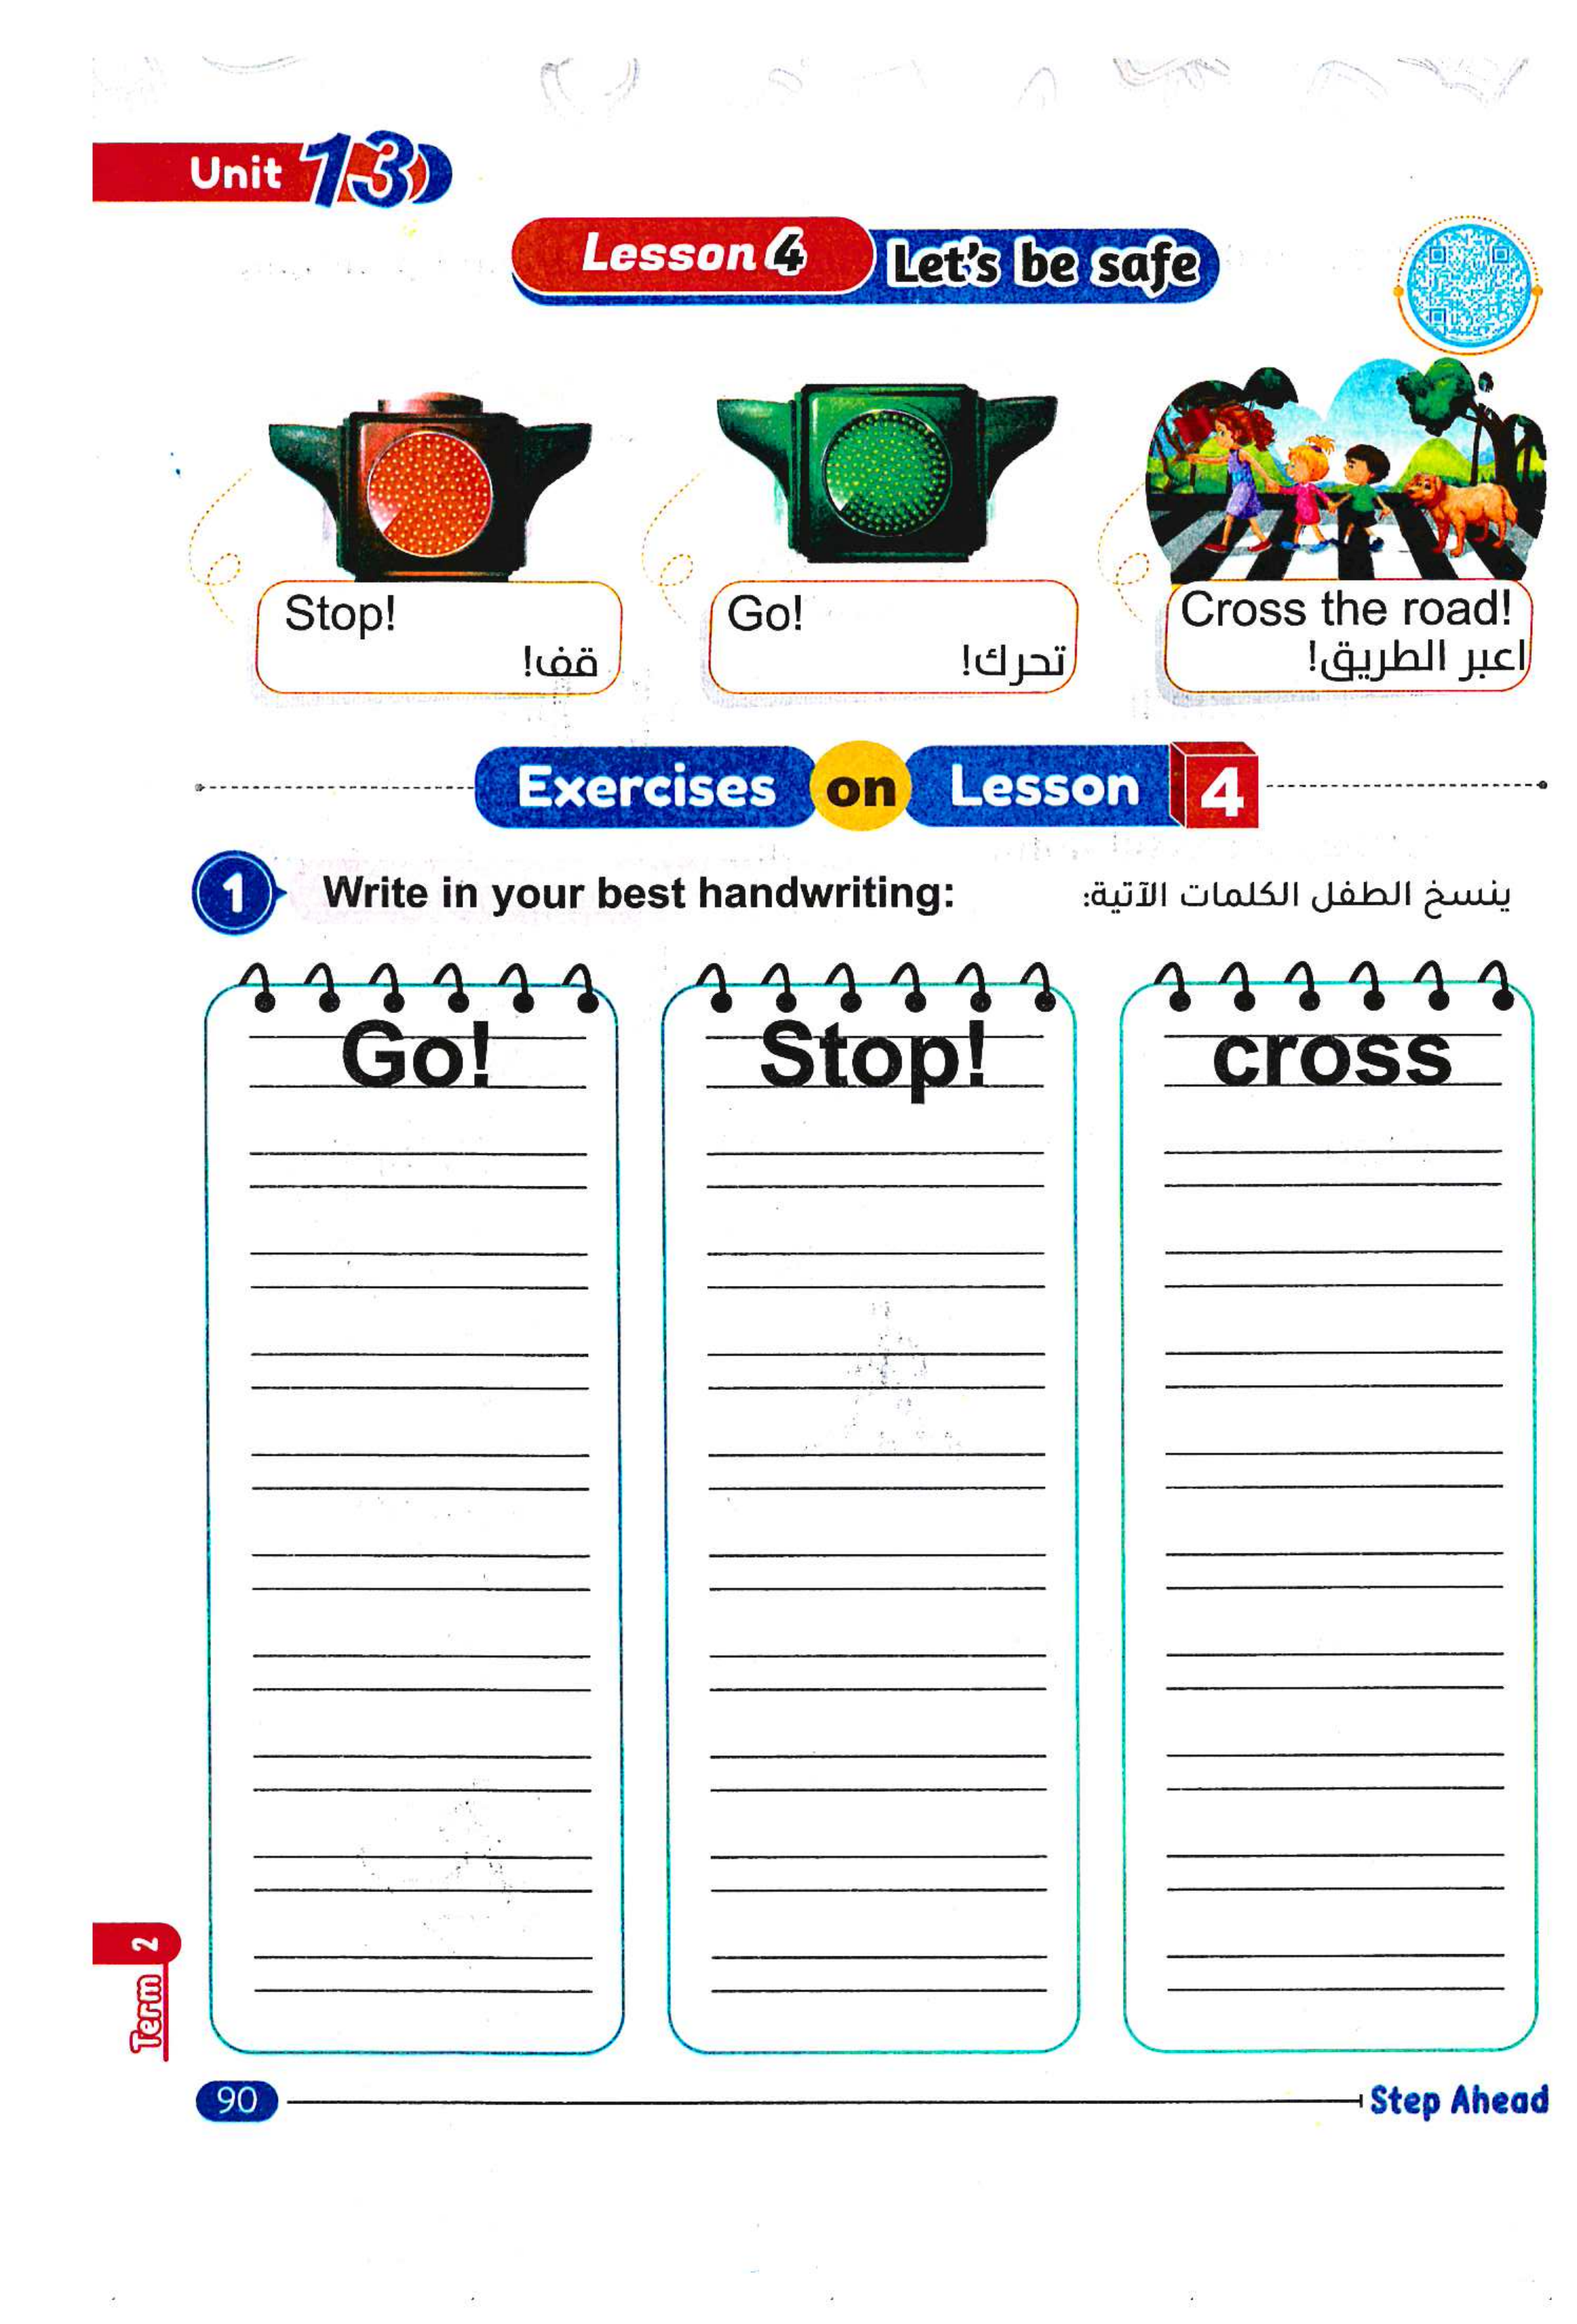 Unit 13
Lesson 4 Let's be safe
Stop!
قف!
Go!
تحرك!
Cross the road!
اعبر الطريق!
Exercises on Lesson 4
1 Write in your best handwriting: ينسخ الطفل الكلمات الآتية:
Go! Stop! cross
Term 2
90 Step Ahead